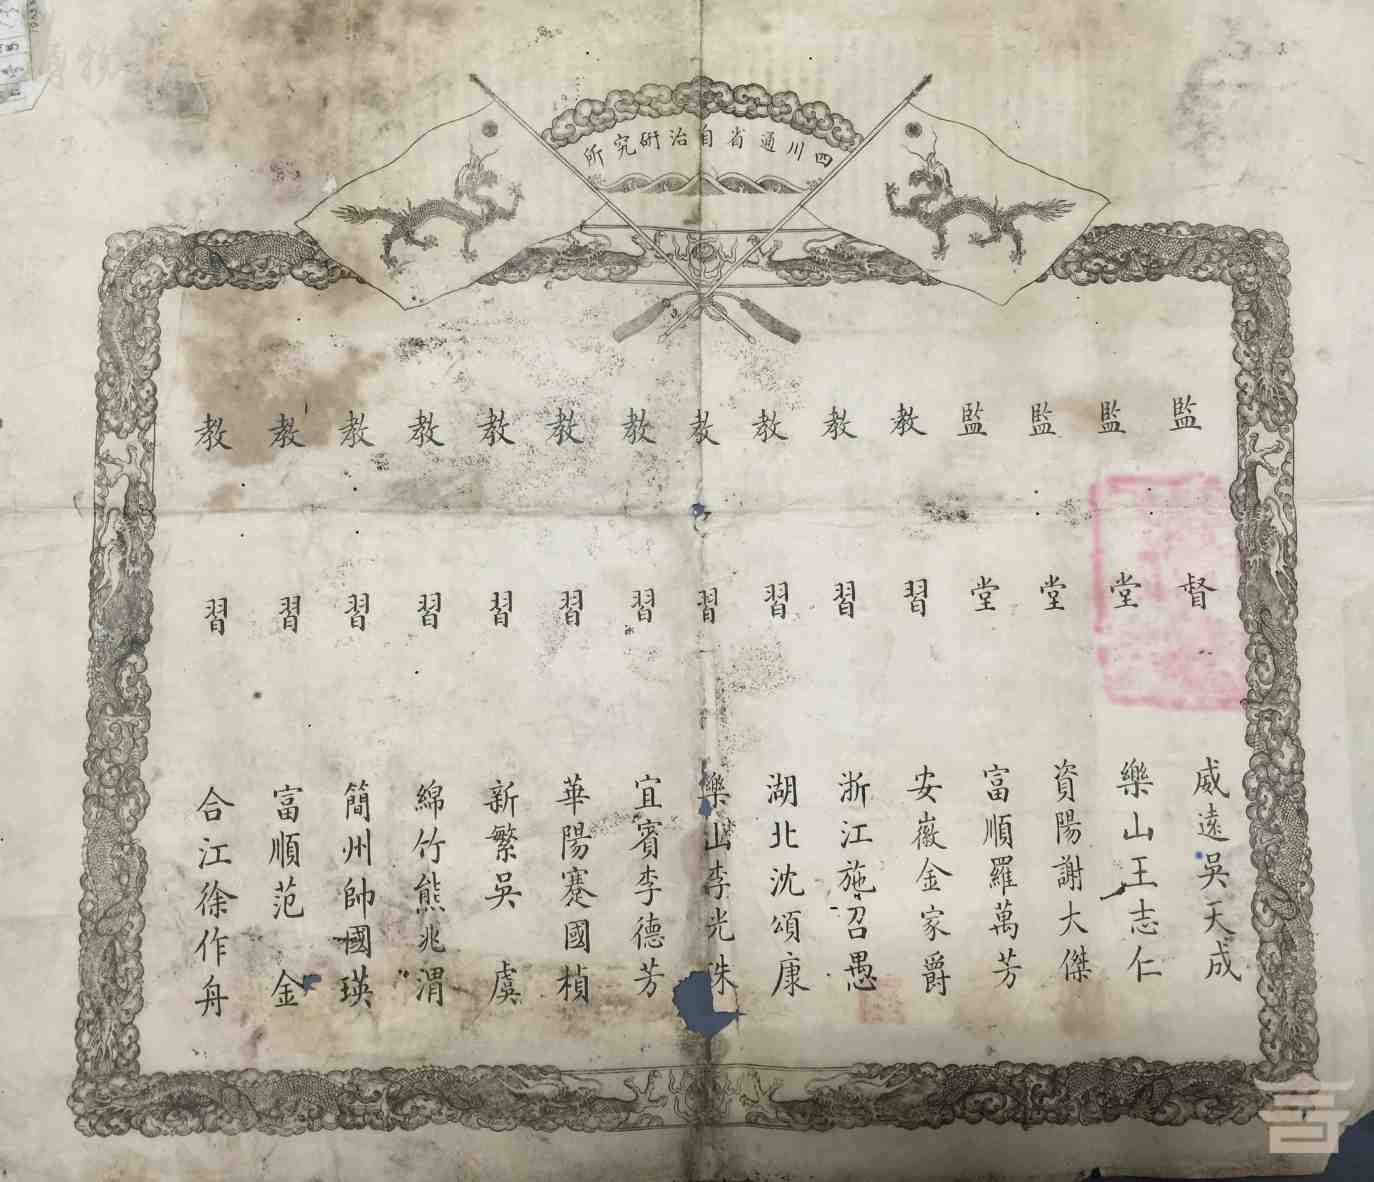 四川通省自治研究所
監督 威遠吳天成
監堂 樂山王志仁
監堂 資陽謝大傑
監堂 富順羅萬芳
教習 安徽金家爵
教習 浙江施召愚
教習 湖北沈頌康
教習 樂山李光珠
教習 宜賓李德芳
教習 華陽蹇國楨
教習 新繁吳虞
教習 綿竹熊兆渭
教習 簡州帥國瑛
教習 富順范金
教習 合江徐作舟